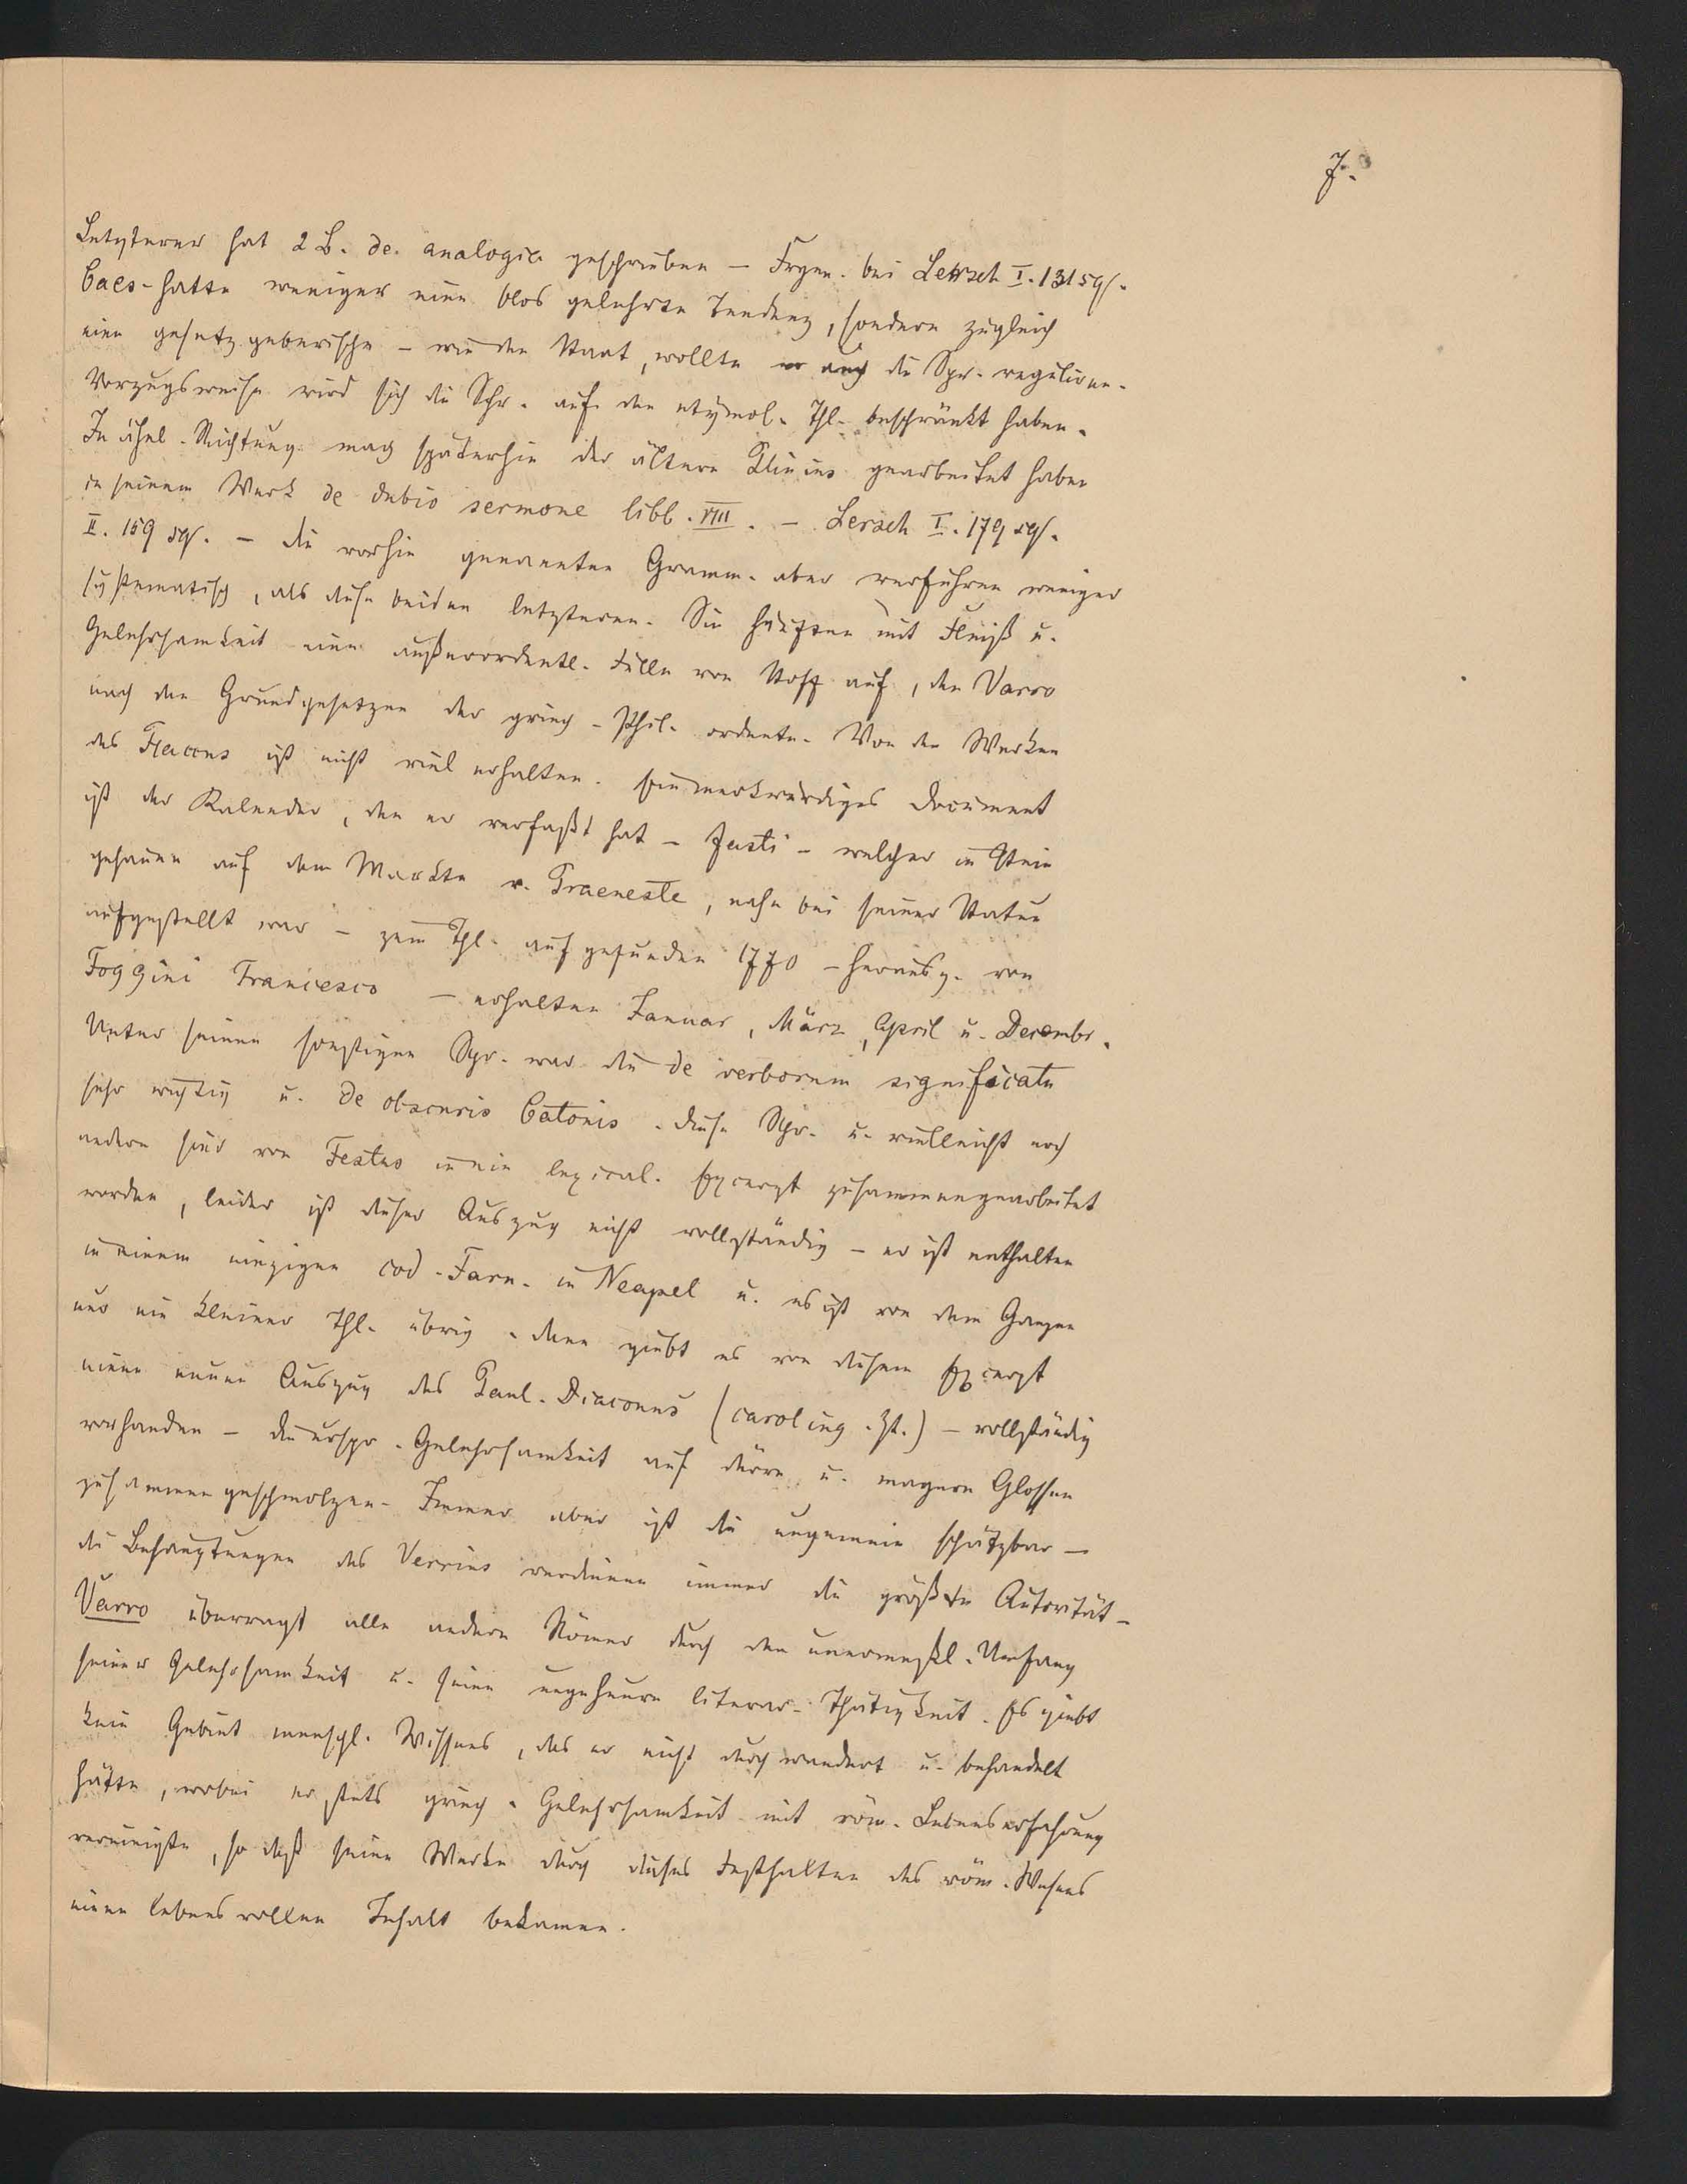 7.
Letzterer hat 2 B. de analogia geschrieben – Frgm. bei Lersch I. 131 sqs.
Caes. hatte weniger eine blos gelehrte Tendenz, sondern zugleich
eine gesetzgeberische – wie den Staat, wollte er auch die Spr. reguliren.
Vorzugsweise wird sich die Schr. auf den etymol. Thl. beschränkt haben.
In ähnl. Richtung mag späterhin der ältere Plinius gearbeitet haben
in seinem Werk de dubio sermone libb. VIII. – Lersch I. 179 sqs.
II. 159 sqs. – die vorhin genannten Gramm. aber verfuhren weniger
systematisch, als diese beiden letzteren. Sie häuften mit Fleiß u.
Gelehrsamkeit eine außerordentl. Fülle von Stoff auf, den Varro
nach den Grundgesetzen der griech. Phil. ordnete. Von den Werken
des Flaccus ist nicht viel erhalten. Ein merkwürdiges Document
ist der Kalender, den er verfaßt hat – fasti – welcher in Stein
gehauen auf dem Markte v. Praeneste, nahe bei seiner Statue
aufgestellt war – zum Thl. aufgefunden 1770 – herausg. von
Foggini Francesco – erhalten Januar, März, April u. Decembr.
Unter seinen sonstigen Schr. war die de verborum significatu
sehr wichtig u. de obscuris Catonis. diese Schr. u. vielleicht noch
andere sind von Festus in ein lexical. Excerpt zusammengearbeitet
worden, leider ist dieser Auszug nicht vollständig – er ist enthalten
in einem einzigen cod. Farn. in Neapel u. es ist von dem Ganzen
nur ein kleiner Thl. übrig. dann giebt es von diesem Excerpt
einen neuen Auszug des Paul. Diaconus (caroling. Zt.) – vollständig
vorhanden – die urspr. Gelehrsamkeit auf dürre u. magere Glossen
zusammengeschmolzen. Immer aber ist die ungemein schätzbar –
die Behauptungen des Verrius verdienen immer die größte Autorität –
Varro überragt alle andern Römer durch den unermeßl. Umfang
seiner Gelehrsamkeit u. seine ungeheure literar. Thätigkeit. Es giebt
kein Gebiet menschl. Wissens, das er nicht durchwandert u. behandelt
hätte, wobei er stets griech. Gelehrsamkeit mit röm. Lebenserfahrung
vereinigte, so daß seine Werke durch dieses Festhalten des röm. Wesens
einen lebensvollen Inhalt bekamen.